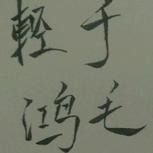 輕于
鸿毛